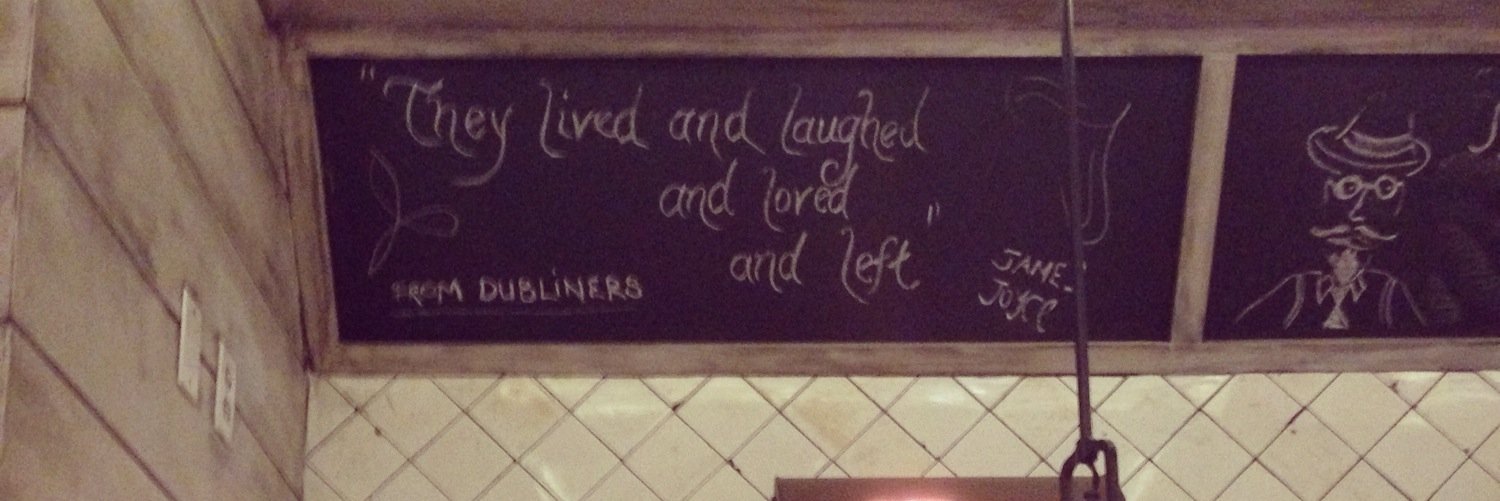 "They lived and laughed
and loved
and left"
FROM DUBLINERS
JAMES
JOYCE